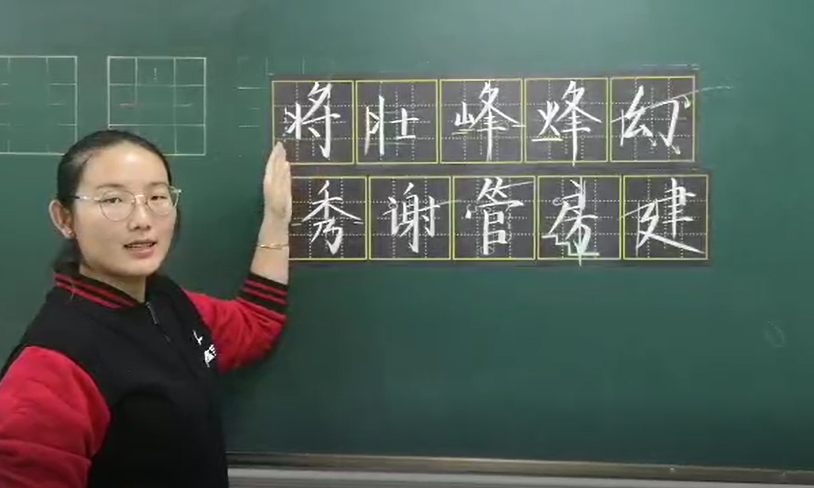 将壮峰烽幻
秀谢管房建